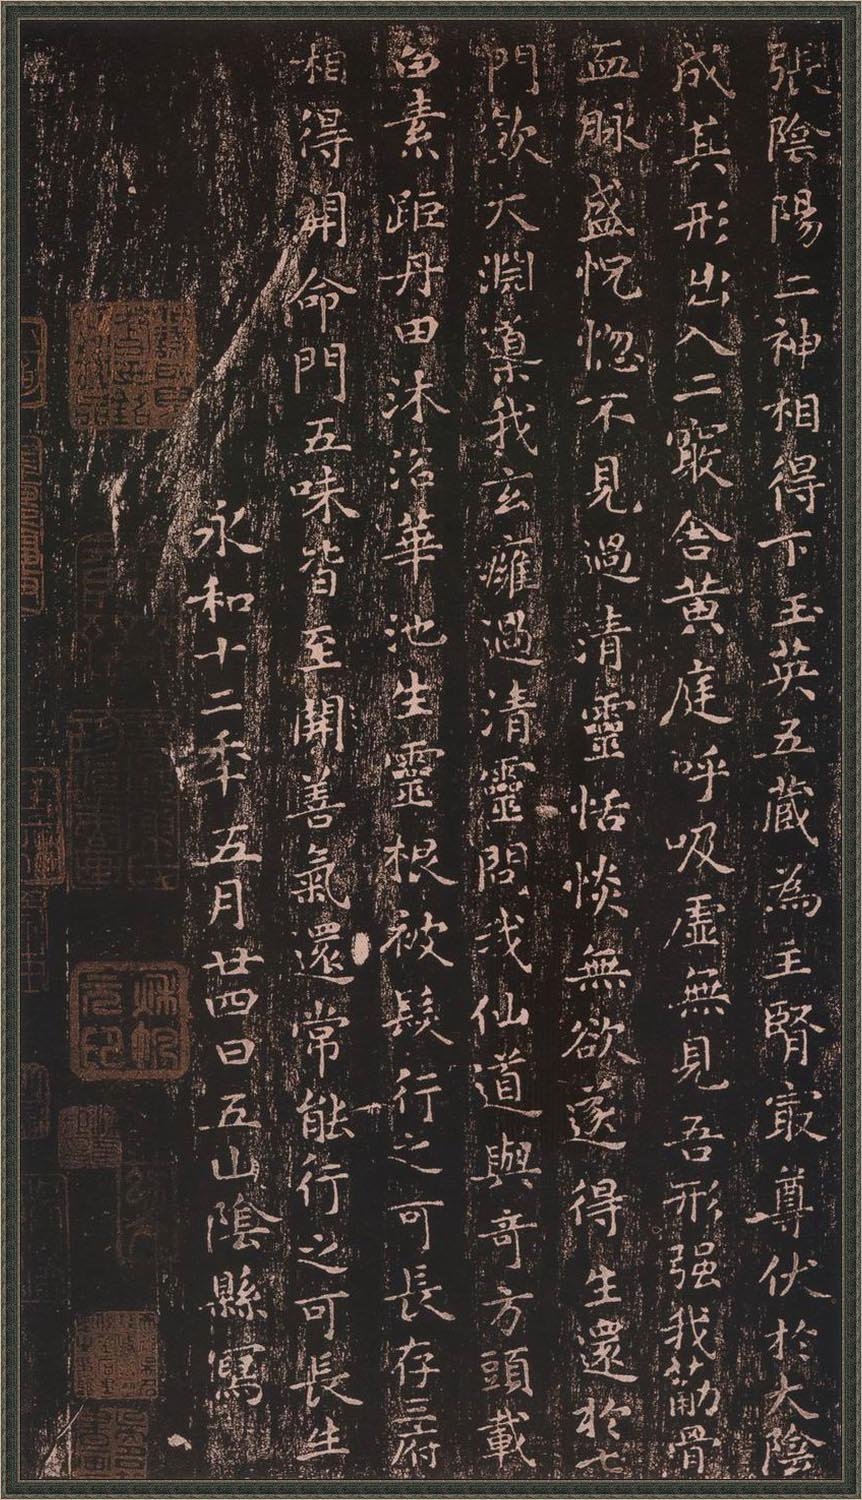 張陰陽二神相得下玉英五藏為主腎冣尊伏於大陰
成其形出入二竅舍黄庭呼吸虛無見吾形强我筋骨
血脉盛怳惚不見過清靈恬惔無欲遂得生還於七
門飲大淵導我玄癰過清靈問我仙道與奇方頭載
白素距丹田沐浴華池生靈根被髮行之可長存三府
相得開命門五味皆至開善氣還常能行之可長生
永和十二年五月廿四日五山陰縣寫